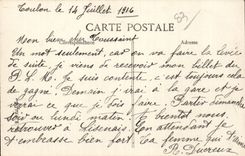 Toulon le 14 Juillet 1916
CARTE POSTALE
Mon bien cher Toussaint
Un mot seulement, car on va faire la
de suite je viens de recevoir mon billet du
P.L.M. je suis contente c'est toujours cela
de gagné. Demain j'irai à la gare et je
verrai ce que je dois faire. Partir dimanche
soir ou lundi matin. Et bientôt nous
retrouver à En attendant je
t'embrasse bien fort Ta femme qui t'
R. Ducreux